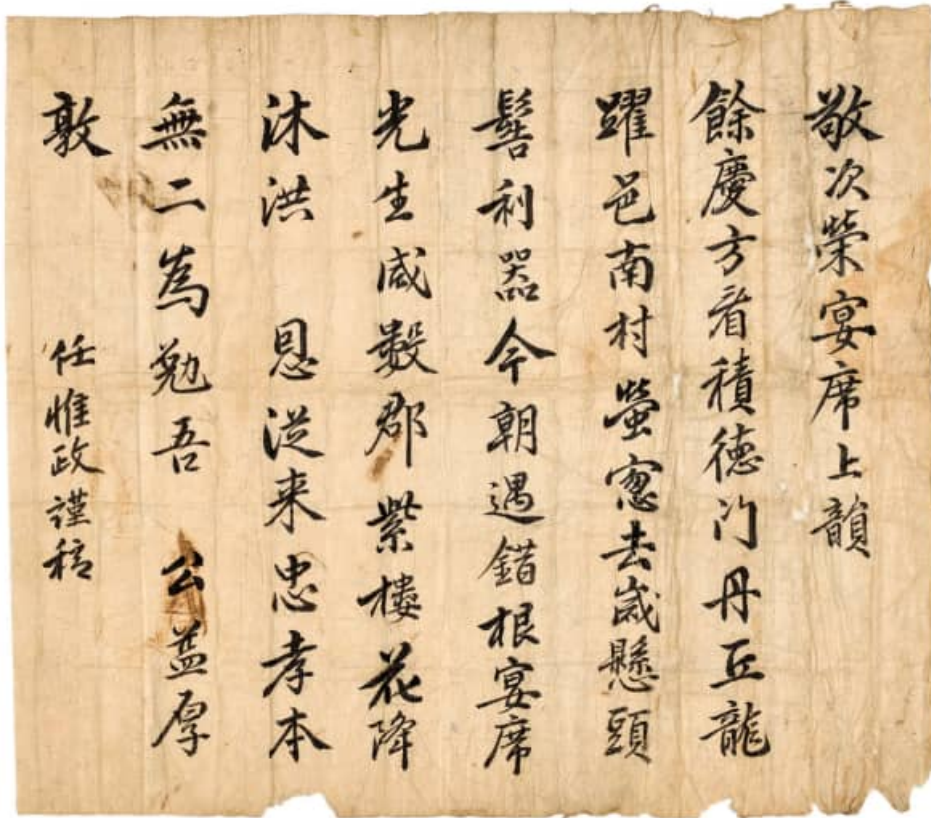 敬次榮宴席上韻
餘慶方看積德门丹丘龍
躍邑南村螢窓去歲懸頭
髻利器今朝遇錯根宴席
光生咸數郡紫樓花降
沐洪恩從来忠孝本
無二為勉吾公益厚
敦
任惟政謹稿